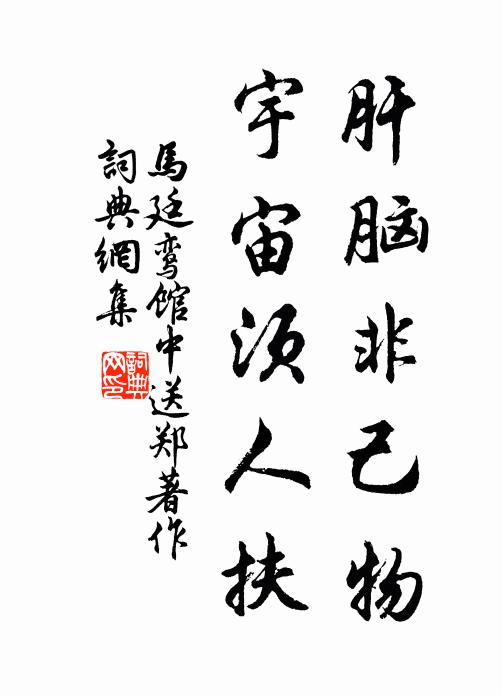 肝脑非己物
宇宙须人扶
馬廷鸾馆中送郑著作
詞典網集
詞典网印